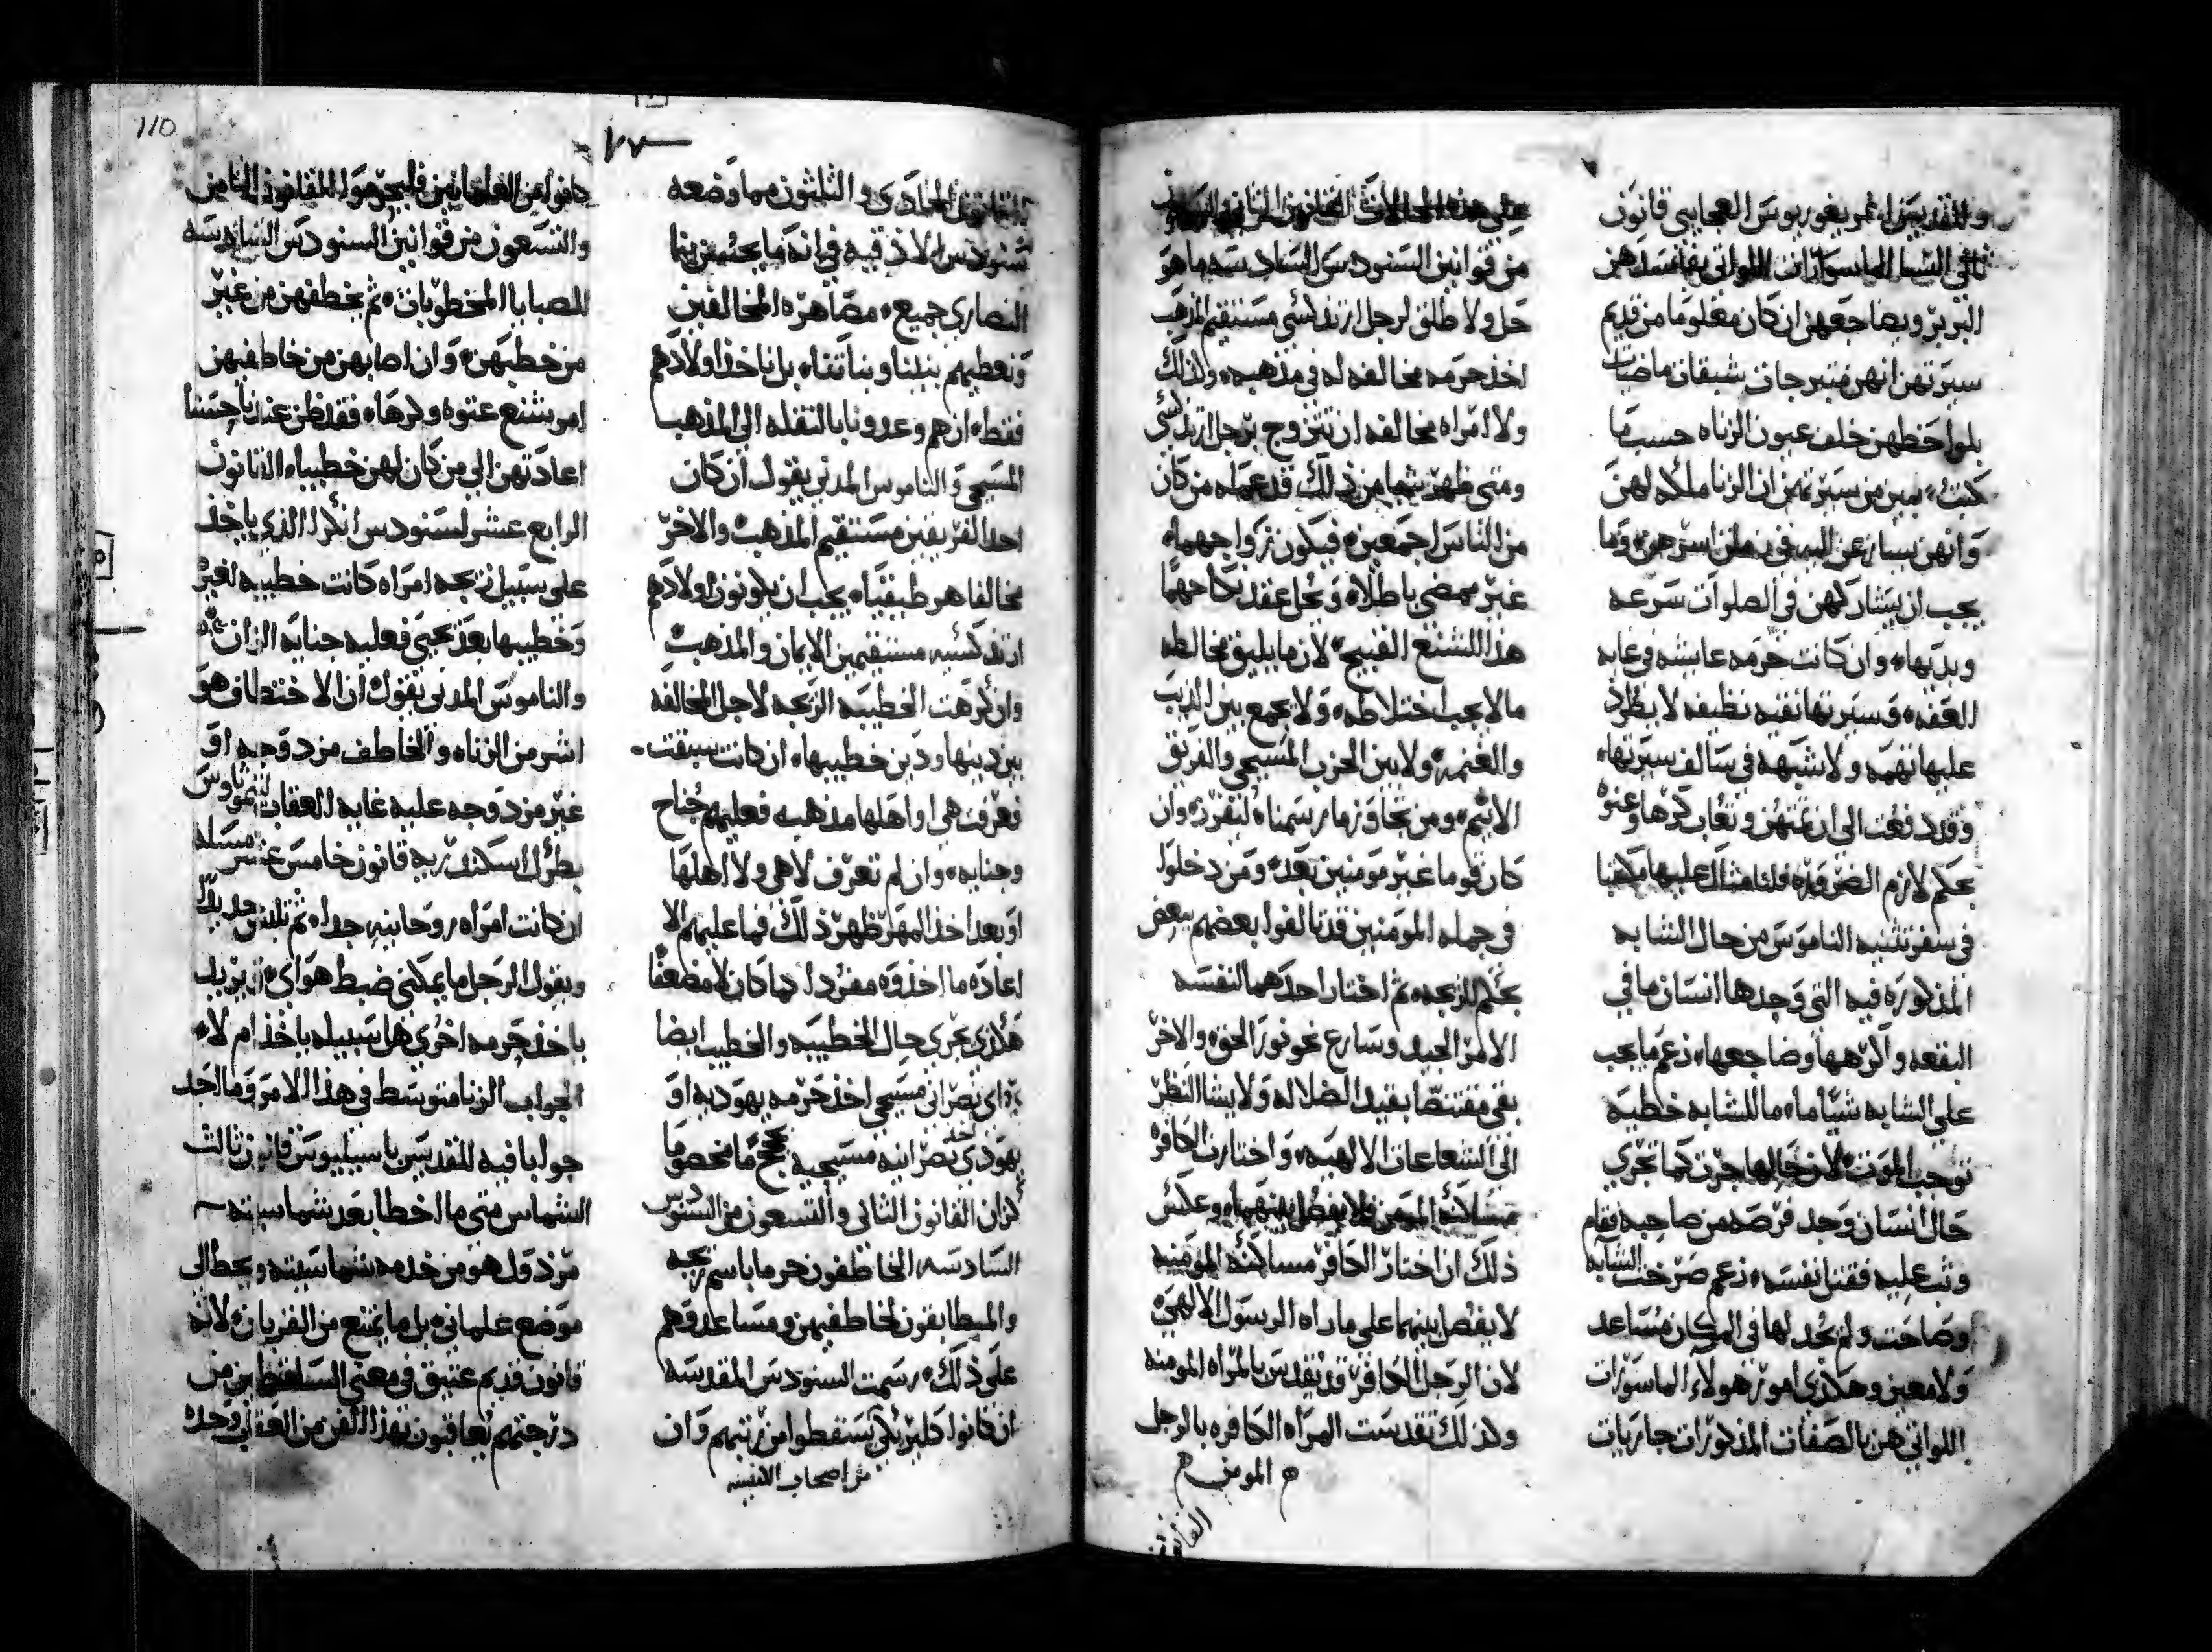 وللقديس اغريغوريوس العجايبي قانون
ثاني النسا الماسورات اللواتي يفاسدهن
البربر ويضاجعهن ان كان معلوما من قديم
سيرتهن انهن متبرجات شبقات ماضيات
بلواحظهن خلف عيون الزناه حسب ما
كتب يبين من سيرتهن ان الزنا ملكه لهن
وانهن يسارعن اليه في زمان اسرهن وما
يجب ان يشاركهن في الصلوات سرعه
وبديها وان كانت حرمه عايشه في غايه
العفه وسيرتها نقيه نظيفه لا يطرد
عليها تهمه ولا شبهه في سالف سيرتها
وقد دفعت الى ان تمتهن وتعاب كرها وعنوه
بحكم لازم الضروره فلنا مثال عليها مكتبا
في سفر تثنيه الناموس من حال الشابه
المذكوره فيه التي وجدها انسان ما في
البقعه واكرهها وضاجعها زعم ما يجب
على الشابه شيأ ما ما للشابه خطيه
توجب الموت لان حالها جرت كما تجري
حال انسان وجد فرصه من صاحبه فقام
وثب عليه فقتل نفسه زعم صرخت الشابه
وصاحت ولم يجد لها في المكان مساعد
ولا معين وهكذى امور هولاء الماسورات
اللواتي هن بالصفات المذكورات جاريات
على هذه الحالات القانون الثاني والسبعون
من قوانين السنودس السادسه ما هو
حل ولا طلق لرجل ارتدكسي مستقيم المذهب
اخذ حرمه مخالفه له في مذهبه وكذلك
ولا امراه مخالفه ان تتزوج برجل ارتدكسي
ومتى ظهر شيا من ذلك قد عمله من كان
من الناس اجمعين فيكون زواجهما
غير ممضى باطلا ويحل عقد نكاحهما
هذا التشنع القبيح لان ما يليق مخالطه
ما لا يجب اختلاطه ولا يجمع بين الذيب
والغنمه ولا بين الحزب المسيحي والفريق
الاثيم ومن تجاوز ما رسمناه لنفرز وان
كان قوما غير مومنين بعد ومن دخلوا
في جمله المومنين قد تالفوا بعضهم ببعض
بحكم الزيجه ثم اختار احدهما لنفسه
الامر الجيد وسارع نحو نور الحق والاخر
بقى مقتنصا بقيد الضلاله ولا يشا النظر
الى الشعاعات الالهيه واختارت الكافره
مساكنه المومن فلا يفصل بينهما وعكس
ذلك ان اختار الكافر مساكنه المومنه
لا يفصل بينهما على ما راه الرسول الالهي
لان الرجل الكافر قد تقدس بالمراه المومنه
وكذلك تقدست المراه الكافره بالرجل
المومن
القانون
القانون الحادي والثلثون مما وضعه
سنودس اللاذقيه في انه ما يجب من بنا
النصارى جميع مصاهره المخالفين
ونعطيهم بنينا وبناتنا بل ناخذ اولادهم
فقط ان هم وعدونا بالنقله الى المذهب
المسيحي والناموس المدني يقول ان كان
احد الفريقين مستقيم المذهب والاخر
مخالفا هرطيقيا يجب ان يكونون اولادهم
ارتدكسيه مستقيمين الايمان والمذهب
وان كرهت الخطيبه الزيجه لاجل المخالفه
بين دينها ودين خطيبها ان كانت سبقت
فعرفت هي او اهلها مذهبه فعليهم جناح
وجنايه وان لم تعرف لا هي ولا اهلها
او بعد اخذ المهر ظهر ذلك فما عليهم الا
اعاده ما اخذوه مفردا كما كان لا مضعفا
هكذى يجري حال الخطيبه والخطيب ايضا
اي نصراني مسيحي اخذ حرمه يهوديه او
يهودي اخذ نصرانيه مسيحيه
لان القانون الثاني والتسعون من السنودس
السادسه الخاطفون حرما باسم زيجه
والمطابقون لخاطفيهن ومساعدوهم
على ذلك رسمت السنودس المقدسه
ان كانوا كليريكي يسقطوا من رتبهم وان
من اصحاب الكنيسه
كانوا من العلمانيين فليحرموا القانون الثامن
والتسعون من قوانين السنودس السادسه
للصبايا المخطوبات ثم يخطفهن من غير
من خطبهن وان اصابهن من خاطفهن
امر بشنع عنوه وكرها فقد ظن عندنا حسنا
اعادتهن الى من كان لهن خطيبا القانون
الرابع عشر لسنودس انكرا الذي ياخذ
على سبيل زيجه امراه كانت خطيبه لغيره
وخطيبها بعد يحيى فعليه جنايه الزان
والناموس المدني يقول ان الاختطاف هو
اشر من الزناه والخاطف مزدوجه او
غير مزدوجه عليه غايه العقاب لتيموثاوس
بطرك اسكندريه قانون خامس عشر مسله
ان كانت امراه روحانيه جدا
ويقول الرجل ما يمكنني ضبط هواي ايريد
ياخذ حرمه اخرى هل سبيله ياخذ ام لا
الجواب الزنا متوسط في هذا الامر وما اجد
جوابا فيه للقديس باسيليوس قانون ثالث
الشماس متى ما اخطا بعد شماسيته
مرذول هو من خدمه شماسيته ويحط الى
موضع علماني بل ما يمتنع من القربان لانه
قانون قديم عتيق في معنى الساقطين من
درجتهم يعاقبون بهذا الفن من العقاب وحده
110